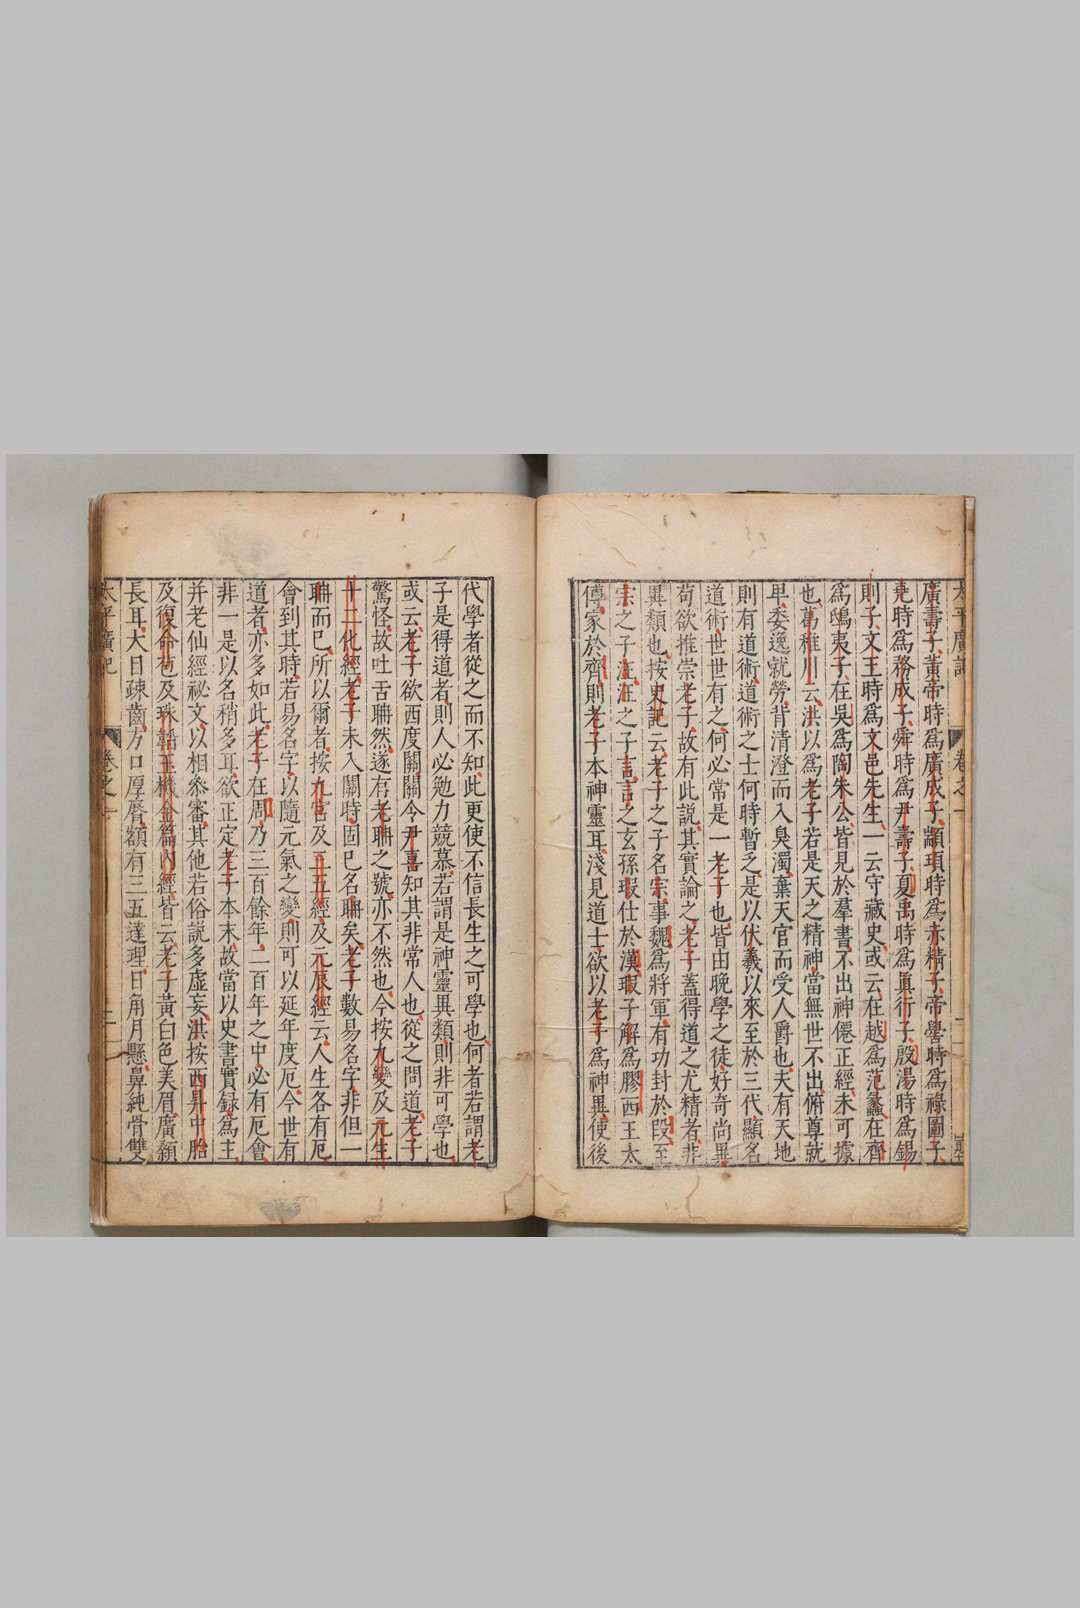 太平廣記
卷之一
廣壽子黃帝時爲廣成子顓頊時爲赤精子帝嚳時爲祿圖子
堯時爲務成子舜時爲尹壽子夏禹時爲眞行子殷湯時爲錫
則子文王時爲文邑先生一云守藏史或云在越爲范蠡在齊
爲鴟夷子在吳爲陶朱公皆見於羣書不出神僊正經未可據
也葛稚川云洪以爲老子若是天之精神當無世不出俯尊就
卑委逸就勞背清澄而入臭濁棄天官而受人爵也夫有天地
則有道術道術之士何時暫乏是以伏羲以來至於三代顯名
道術世世有之何必常是一老子也皆由晚學之徒好奇尚異
苟欲推崇老子故有此說其實論之老子蓋得道之尤精者非
異類也按史記云老子之子名宗事魏爲將軍有功封於段至
宗之子汪汪之子言言之玄孫瑕仕於漢瑕子解爲膠西王太
傅家於齊則老子本神靈耳淺見道士欲以老子爲神異使後
代學者從之而不知此更使不信長生之可學也何者若謂老
子是得道者則人必勉力競慕若謂是神靈異類則非可學也
或云老子欲西度關關令尹喜知其非常人也從之問道老子
驚怪故吐舌聃然遂有老聃之號亦不然也今按九變及元生
十二化經老子未入關時固已名聃矣老子數易名字非但一
聃而已所以爾者按九宮及三五經及元辰經云人生各有厄
會到其時若易名字以隨元氣之變則可以延年度厄今世有
道者亦多如此老子在周乃三百餘年二百年之中必有厄會
非一是以名稍多耳欲正定老子本末故當以史書實録爲主
并老仙經祕文以相叅審其他若俗説多虛妄洪按西昇中胎
及復命苞及珠韜玉機金篇內經皆云老子黃白色美眉廣顙
長耳大目疎齒方口厚脣額有三五達理日角月懸鼻純骨雙
太平廣記
卷之一